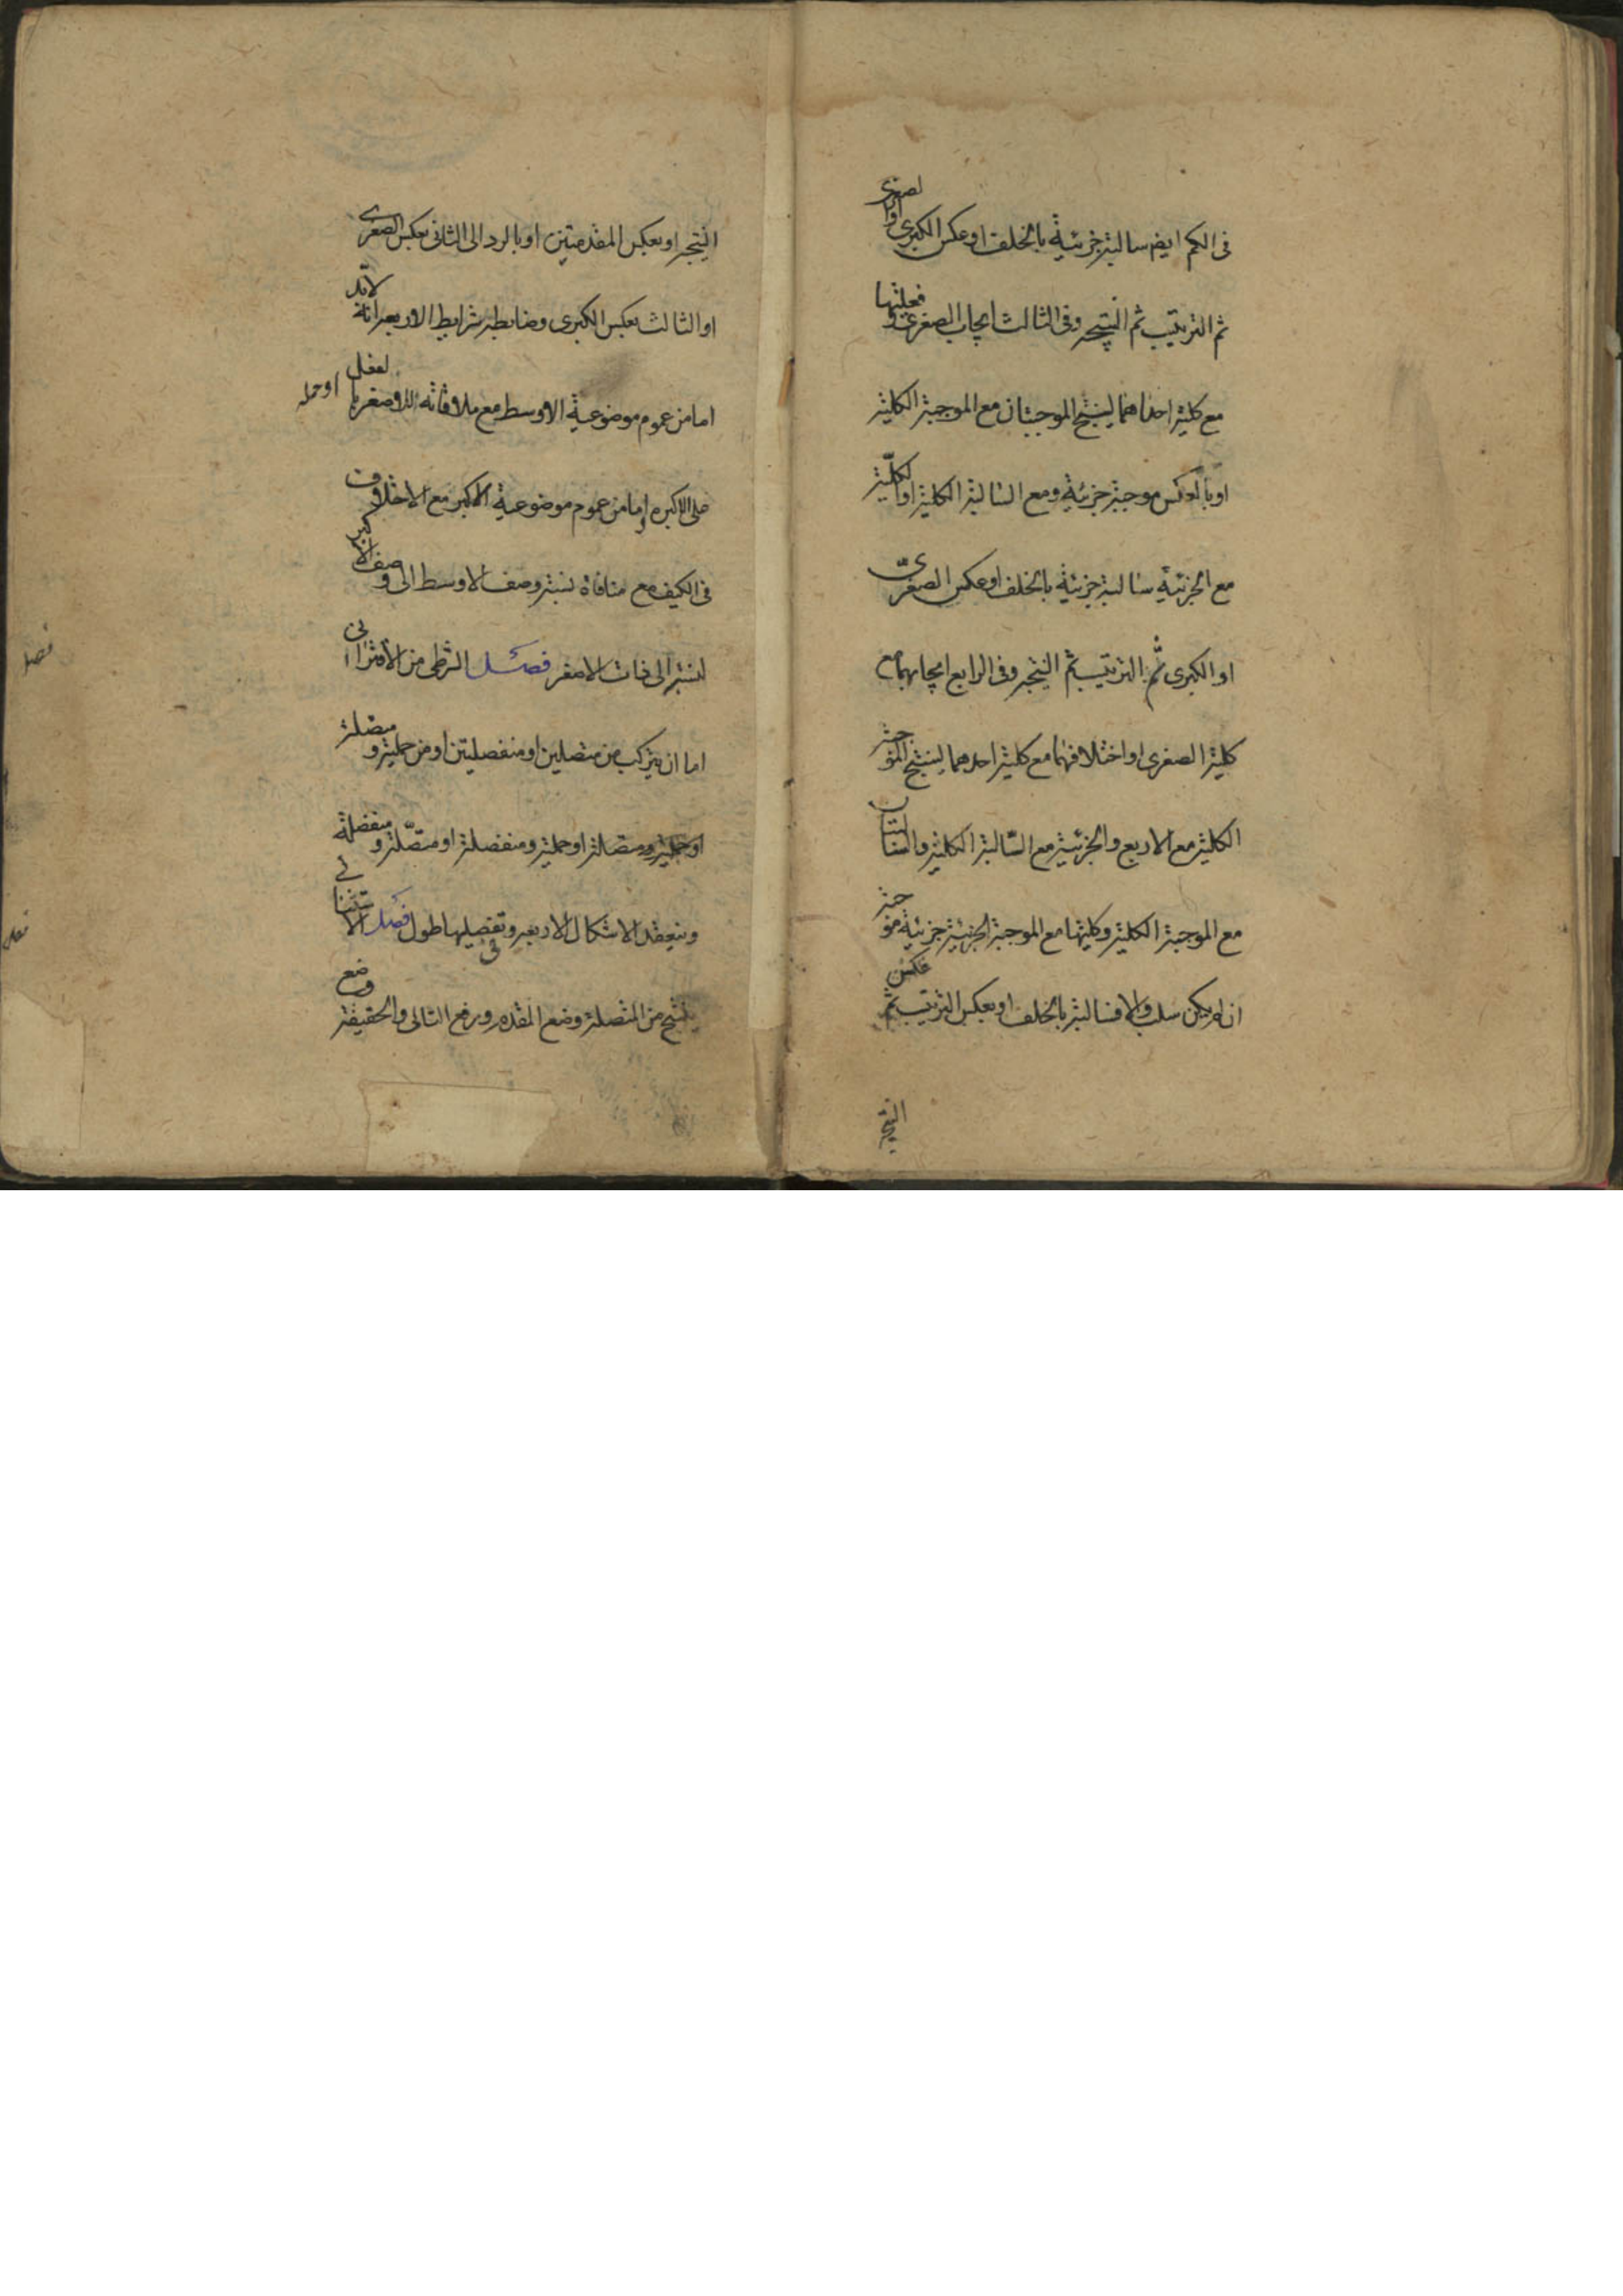 فى الكم ايض سالبة جزئية بالخلف او عكس الكبرى او الصغرى
ثم الترتيب ثم النتيجه وفى الثالث ايجاب الصغرى و فعليتها
مع كلية احداهما لينتج الموجبتان مع الموجبة الكلية
او بالعكس موجبة جزئية ومع السالبة الكلية او الكلية
مع الجزئية سالبة جزئية بالخلف او عكس الصغرى
او الكبرى ثم الترتيب ثم النتيجه وفى الرابع ايجابهما مع
كلية الصغرى او اختلافهما مع كلية احدهما لينتج الموجبة
الكلية مع الاربع والجزئية مع السالبة الكلية والسالبتان
مع الموجبة الكلية وكليتها مع الموجبة الجزئية جزئية موجبة
ان لم يكن سلب والا فسالبة بالخلف او بعكس الترتيب ثم عكس
النتيجة
النتيجه او بعكس المقدمتين او بالرد الى الثانى بعكس الصغرى
او الثالث بعكس الكبرى وضابطه شرايط الاربعه انه لابد
اما من عموم موضوعية الاوسط مع ملاقاته للاصغر بالفعل او حمله
على الاكبر و اما من عموم موضوعية الاكبر مع الاختلاف
فى الكيف مع منافاة نسبة وصف الاوسط الى وصف الاكبر
لنسبته الى ذات الاصغر فصل الشرطى من الاقترانى
اما ان يتركب من متصلين او منفصلتين او من حملية و متصلة
او حملية ومتصلة او حملية ومنفصلة او متصلة و منفصلة
وينعقد الاشكال الاربعه و فى تفصيلها طول فصل الاستثنائى
ينتج من المتصلة وضع المقدم ورفع التالى والحقيقة وضع
فصل